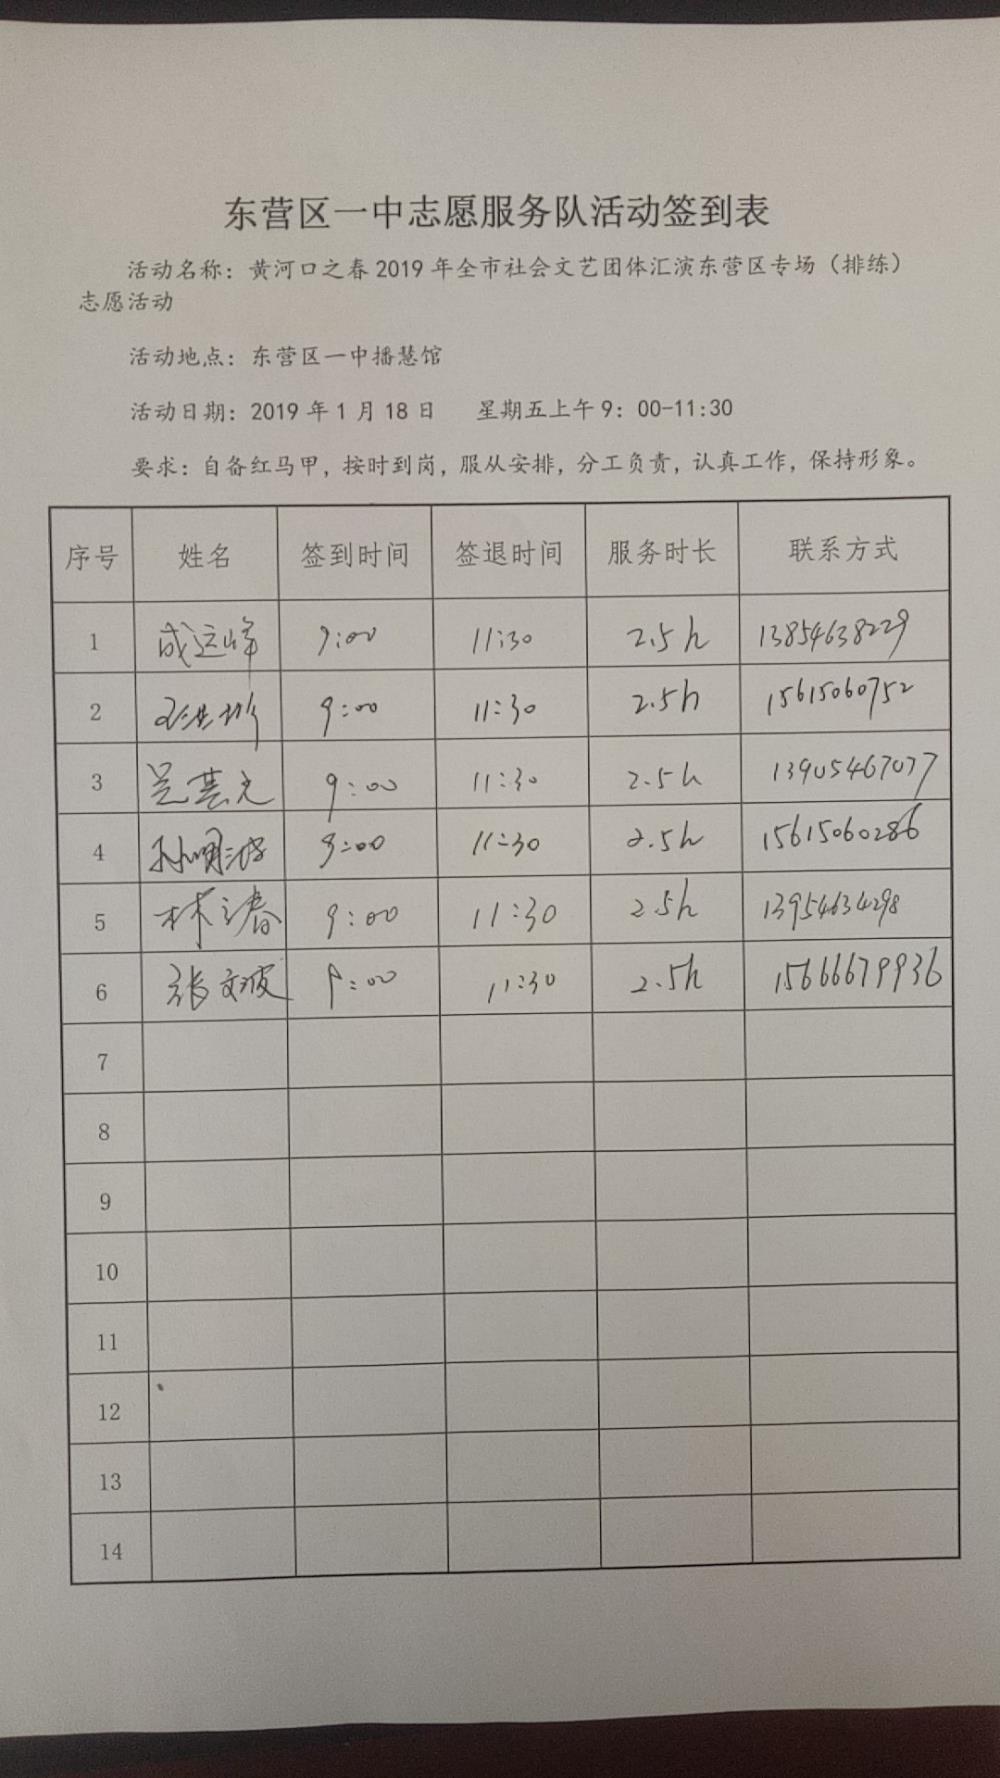 东营区一中志愿服务队活动签到表
活动名称：黄河口之春2019年全市社会文艺团体汇演东营区专场（排练）
志愿活动
活动地点：东营区一中播慧馆
活动日期：2019年1月18日 星期五上午9：00-11:30
要求：自备红马甲，按时到岗，服从安排，分工负责，认真工作，保持形象。
序号 姓名 签到时间 签退时间 服务时长 联系方式
1 成运峰 9:00 11:30 2.5h 13854638229
2 9:00 11:30 2.5h 15615060752
3 9:00 11:30 2.5h 13905467077
4 孙明 9:00 11:30 2.5h 15615060286
5 林 春 9:00 11:30 2.5h 13954634298
6 张文波 9:00 11:30 2.5h 15666679936
7
8
9
10
11
12
13
14